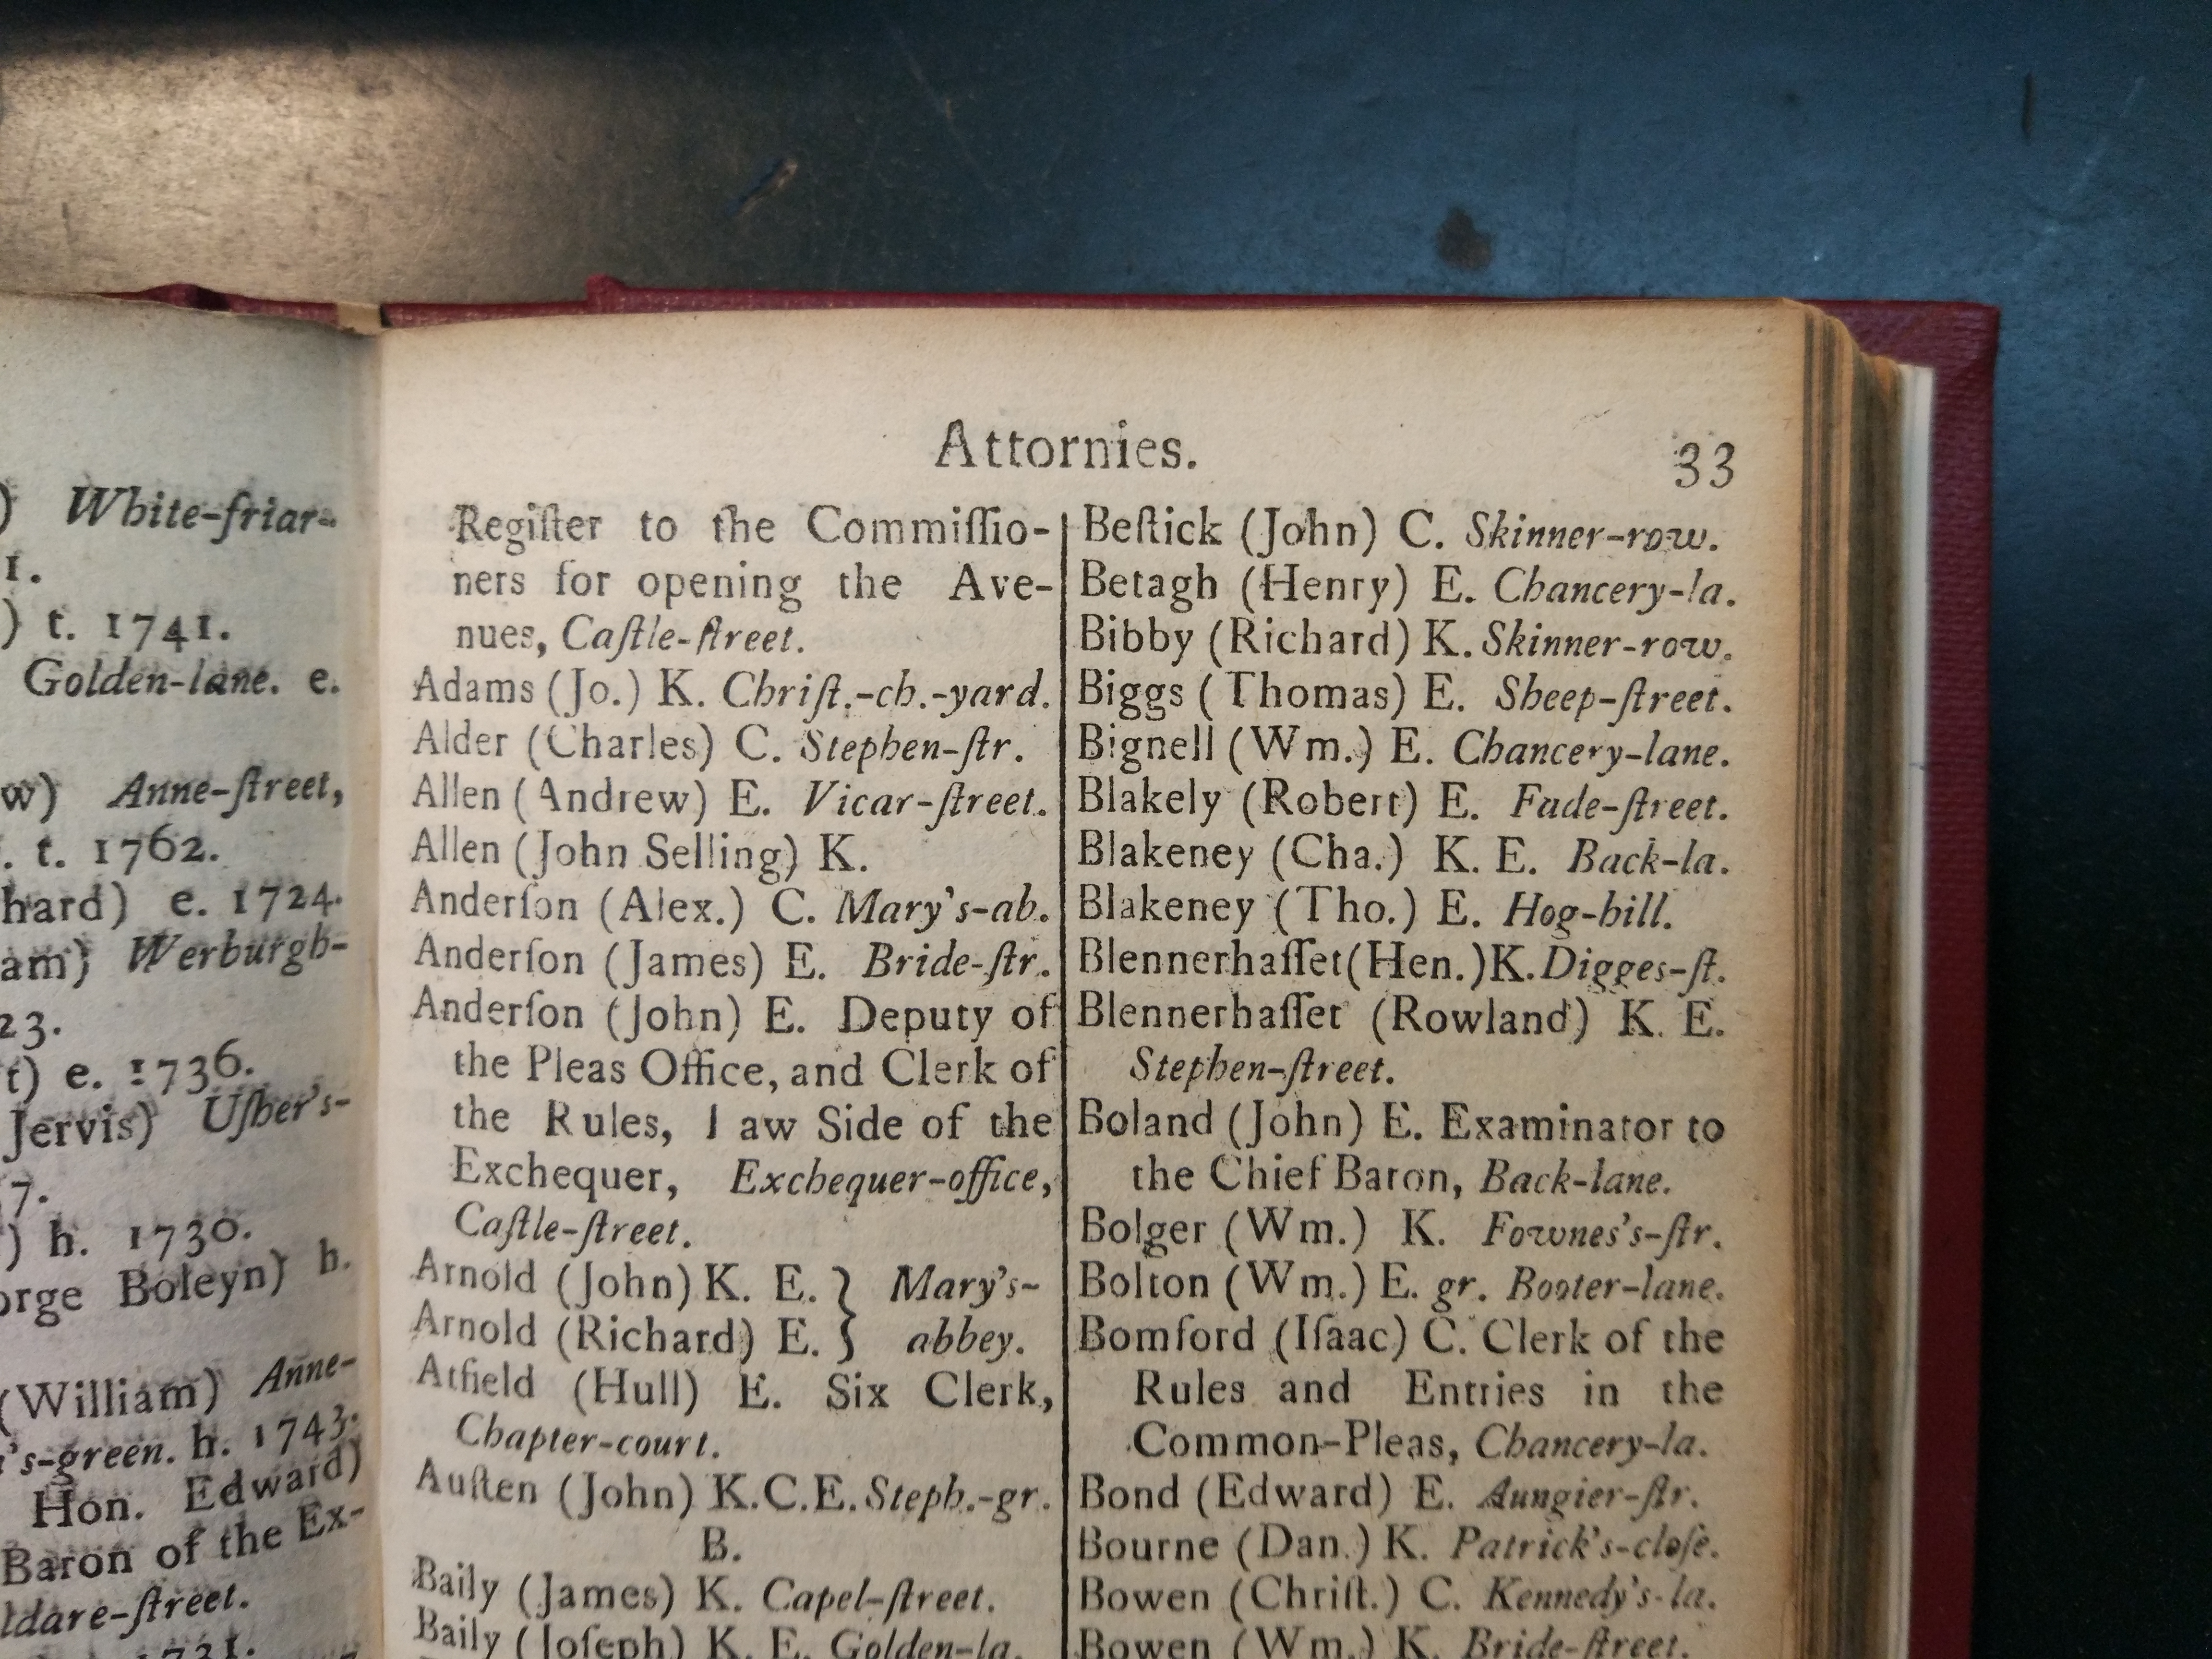 ) White-friar-
1.
) t. 1741.
Golden-lane. e.
w) Anne-ſtreet,
. t. 1762.
hard) e. 1724.
am) Werburgh-
23.
t) e. 1736.
Jervis) Uſher's-
7.
) h. 1730.
orge Boleyn) h.
(William) Anne-
's-green. h. 1743.
Hon. Edward)
Baron of the Ex-
ldare-ſtreet.
1731.
Attornies.
33
Regiſter to the Commiſſio-
ners for opening the Ave-
nues, Caſtle-ſtreet.
Adams (Jo.) K. Chriſt.-ch.-yard.
Alder (Charles) C. Stephen-ſtr.
Allen (Andrew) E. Vicar-ſtreet.
Allen (John Selling) K.
Anderſon (Alex.) C. Mary's-ab.
Anderſon (James) E. Bride-ſtr.
Anderſon (John) E. Deputy of
the Pleas Office, and Clerk of
the Rules, Law Side of the
Exchequer, Exchequer-office,
Caſtle-ſtreet.
Arnold (John) K. E. } Mary's-
Arnold (Richard) E. } abbey.
Atfield (Hull) E. Six Clerk,
Chapter-court.
Auſten (John) K.C.E. Steph.-gr.
B.
Baily (James) K. Capel-ſtreet.
Baily (Joſeph) K. E. Golden-la.
Beſtick (John) C. Skinner-row.
Betagh (Henry) E. Chancery-la.
Bibby (Richard) K. Skinner-row.
Biggs (Thomas) E. Sheep-ſtreet.
Bignell (Wm.) E. Chancery-lane.
Blakely (Robert) E. Fade-ſtreet.
Blakeney (Cha.) K. E. Back-la.
Blakeney (Tho.) E. Hog-hill.
Blennerhaſſet (Hen.) K. Digges-ſt.
Blennerhaſſet (Rowland) K. E.
Stephen-ſtreet.
Boland (John) E. Examinator to
the Chief Baron, Back-lane.
Bolger (Wm.) K. Fownes's-ſtr.
Bolton (Wm.) E. gr. Booter-lane.
Bomford (Iſaac) C. Clerk of the
Rules and Entries in the
Common-Pleas, Chancery-la.
Bond (Edward) E. Aungier-ſtr.
Bourne (Dan.) K. Patrick's-cloſe.
Bowen (Chriſt.) C. Kennedy's-la.
Bowen (Wm.) K. Bride-ſtreet.